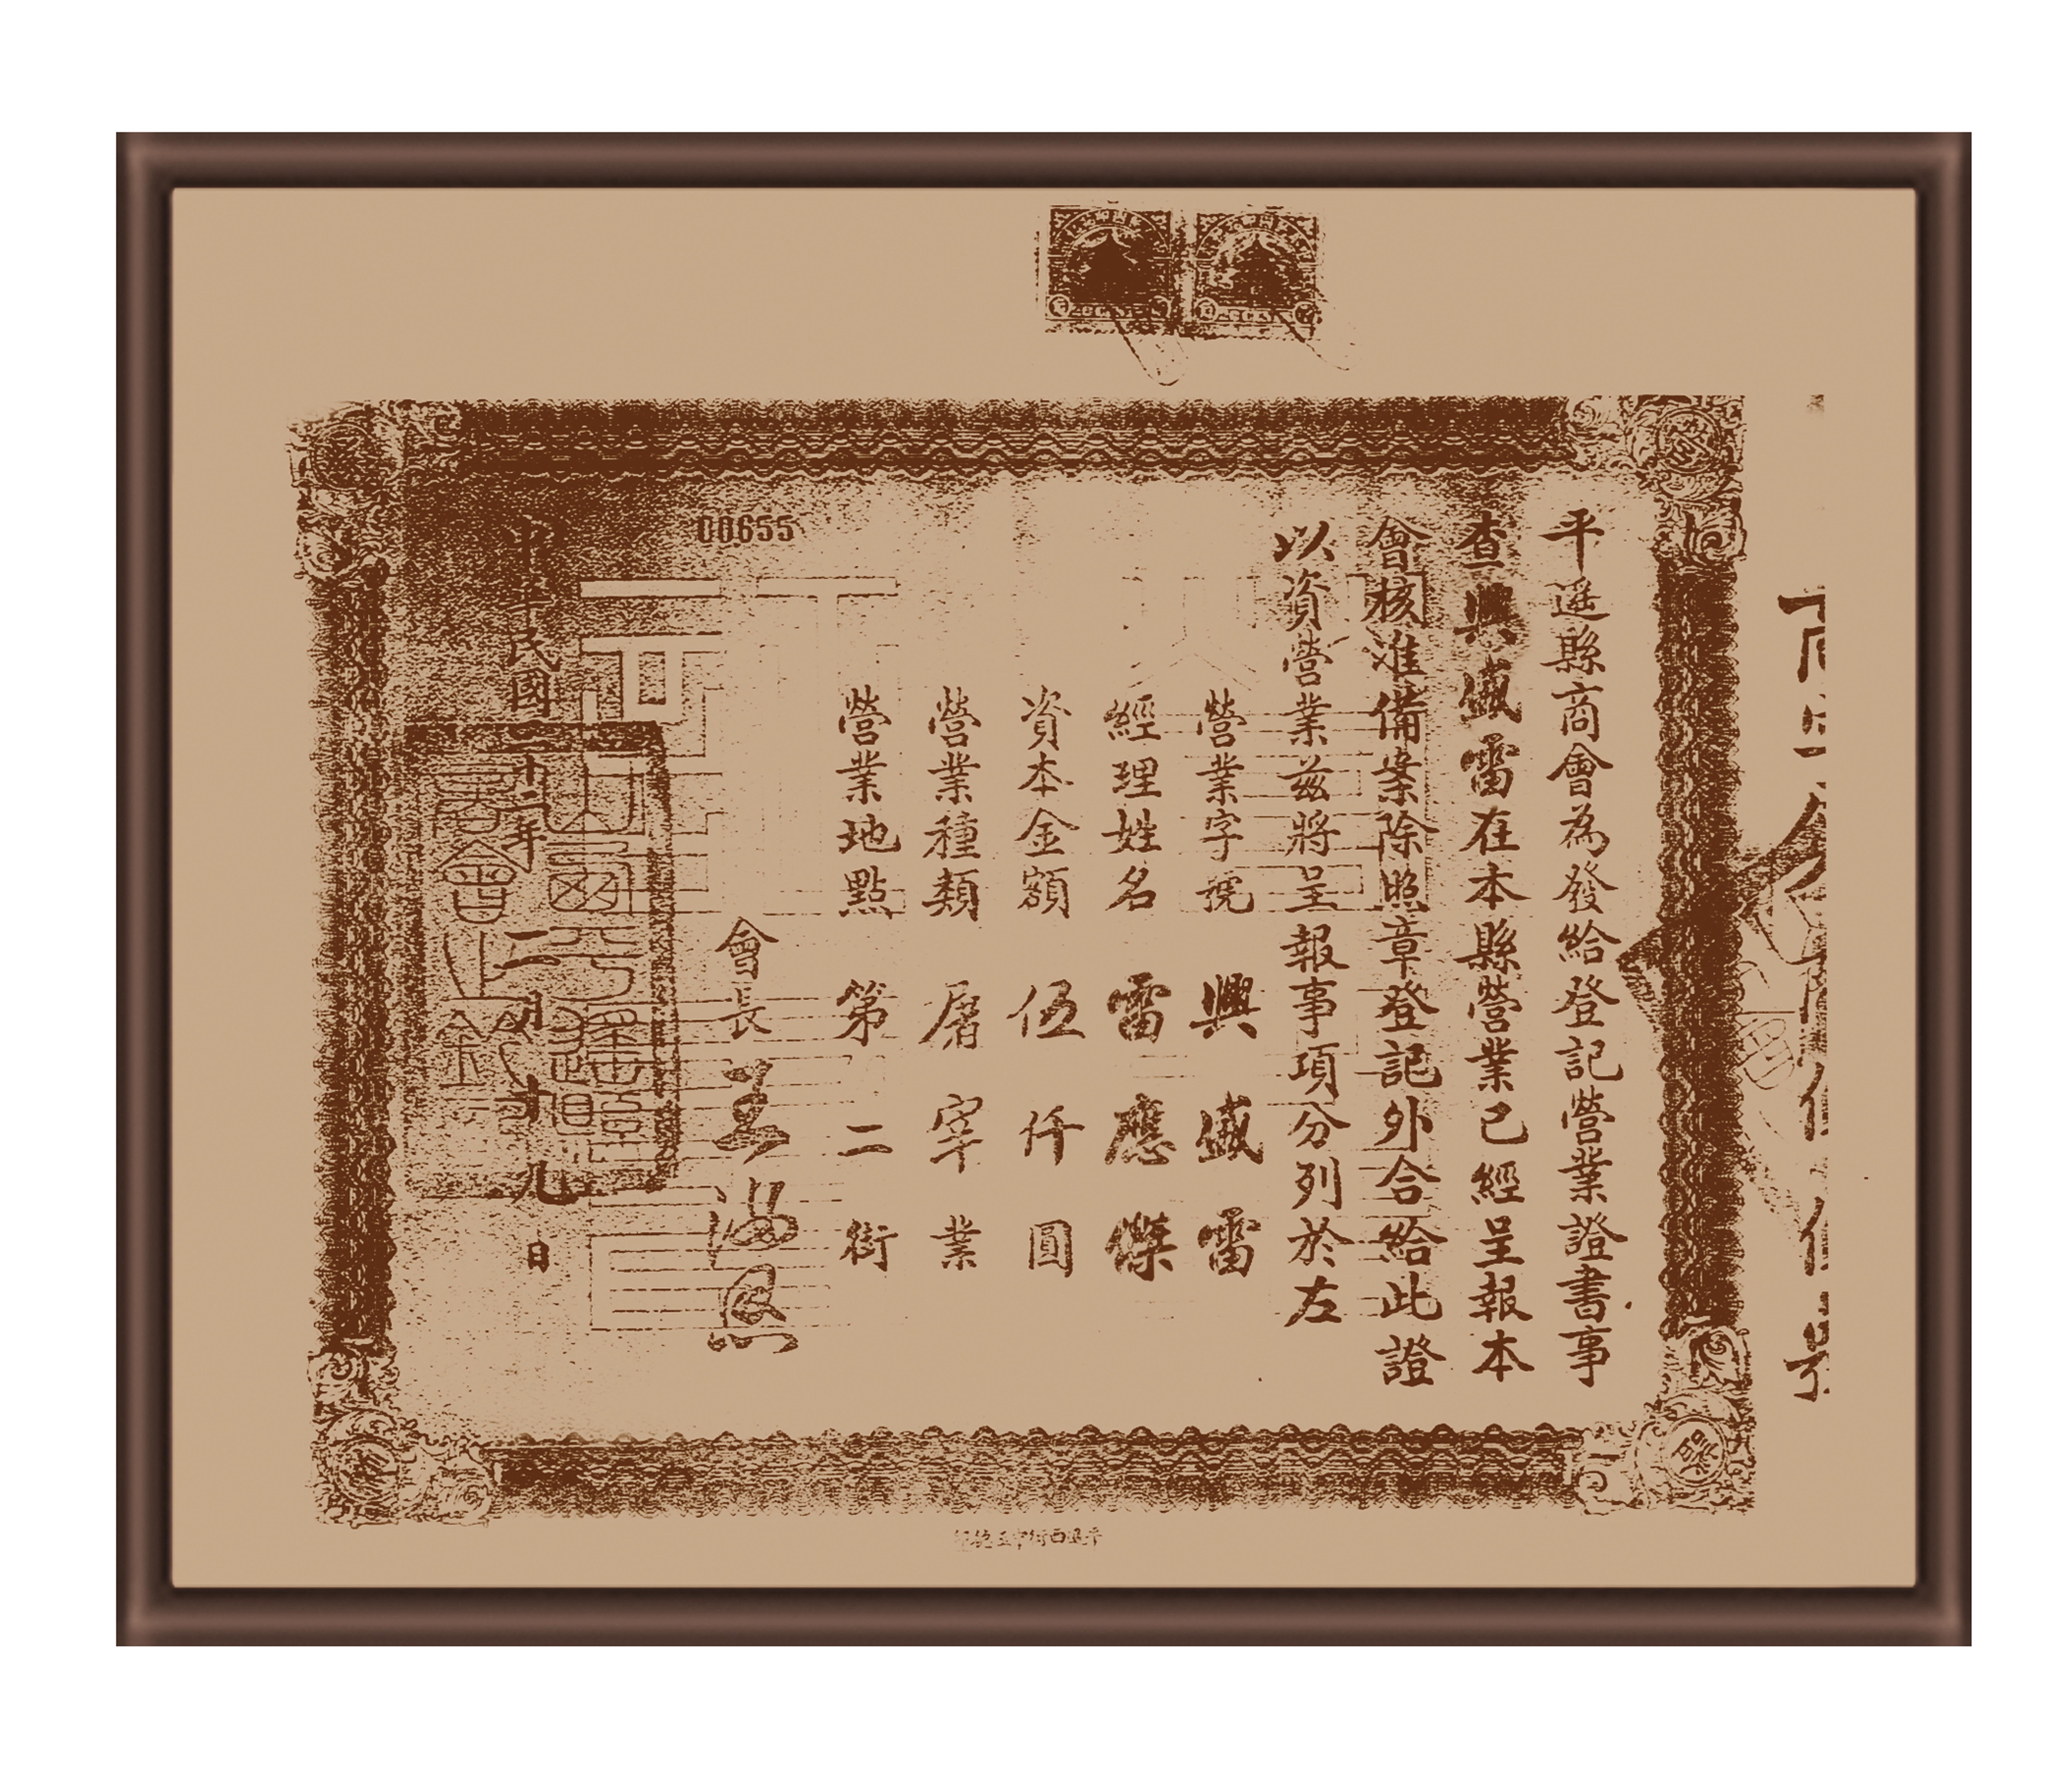 平遥縣商會為發給登記營業證書事
查興盛雷在本縣營業已經呈報本
會核准備案除照章登記外合給此證
以資營業茲將呈報事項分列於左
營業字號 興盛雷
經理姓名 雷應傑
資本金額 伍仟圓
營業種類 屠宰業
營業地點 第二街
會長 王
00655
中華民國二十二年二月十九日
山西平遥縣商會之鈐記